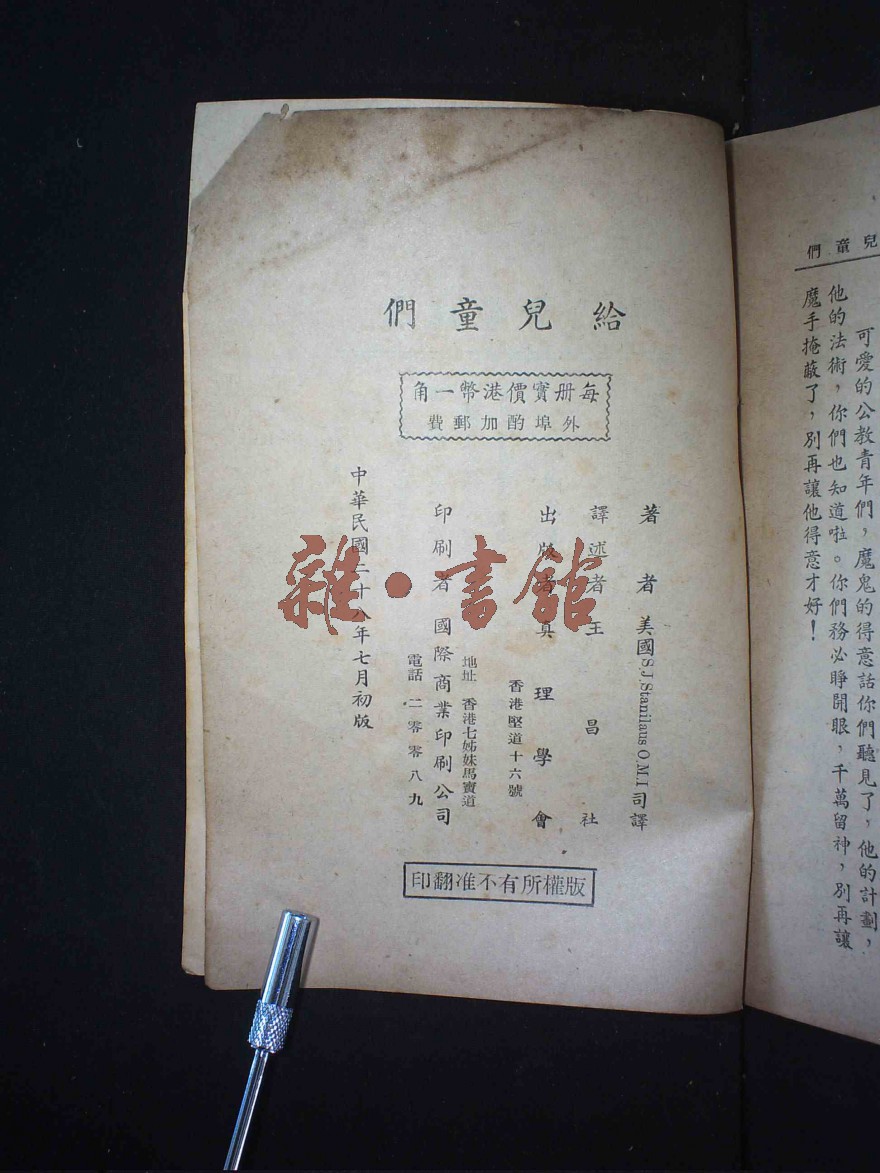 兒童們
可愛的公教青年們，魔鬼的得意話你們聽見了，他的計劃，
他的法術，你們也知道啦。你們務必睜開眼，千萬留神，別再讓
魔手掩蔽了，別再讓他得意才好！
給兒童們
每册實價港幣一角
外埠酌加郵費
著者 美國S.J.Stanilaus O.M.I司譯
譯述者 王昌社
出版者 真理學會
香港堅道十六號
地址 香港七姊妹馬寶道
印刷者 國際商業印刷公司
電話 二零零八九
中華民國二十八年七月初版
版權所有不准翻印
雜·書館